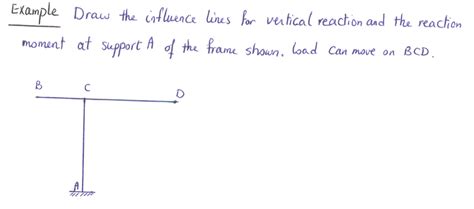 Example Draw the influence lines for vertical reaction and the reaction
moment at support A of the frame shown. Load can move on BCD.
B C D
A